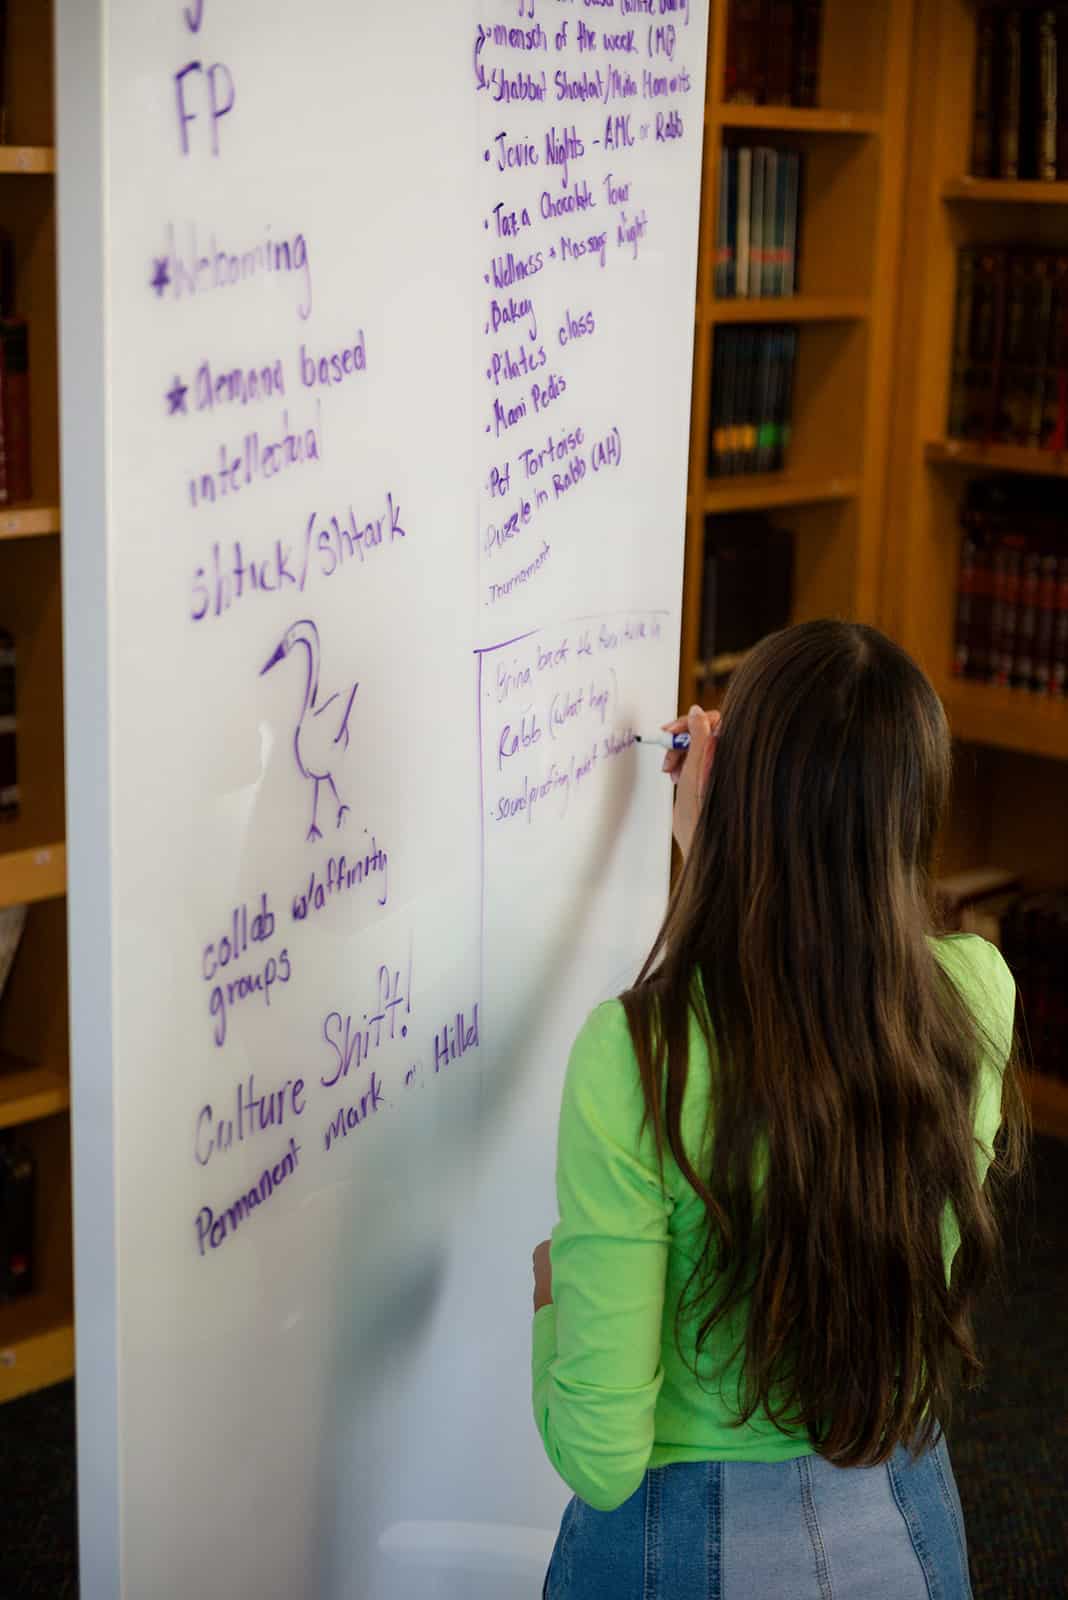 FP
*Welcoming
*demand based
intellectual
shtick/shtark
collab w/affinity
groups
Culture Shift!
Permanent mark on Hillel
•mensch of the week
Shabbat
• Jovie Nights - AMC or Rabb
• Taza Chocolate Tour
• Wellness + Massage Night
• Bakey
• Pilates class
• Mani Pedis
• Pet Tortoise
Puzzle in Rabb (AH)
• Tournament
• Bring back the furniture in
Rabb (what hap)
• soundproofing/quiet